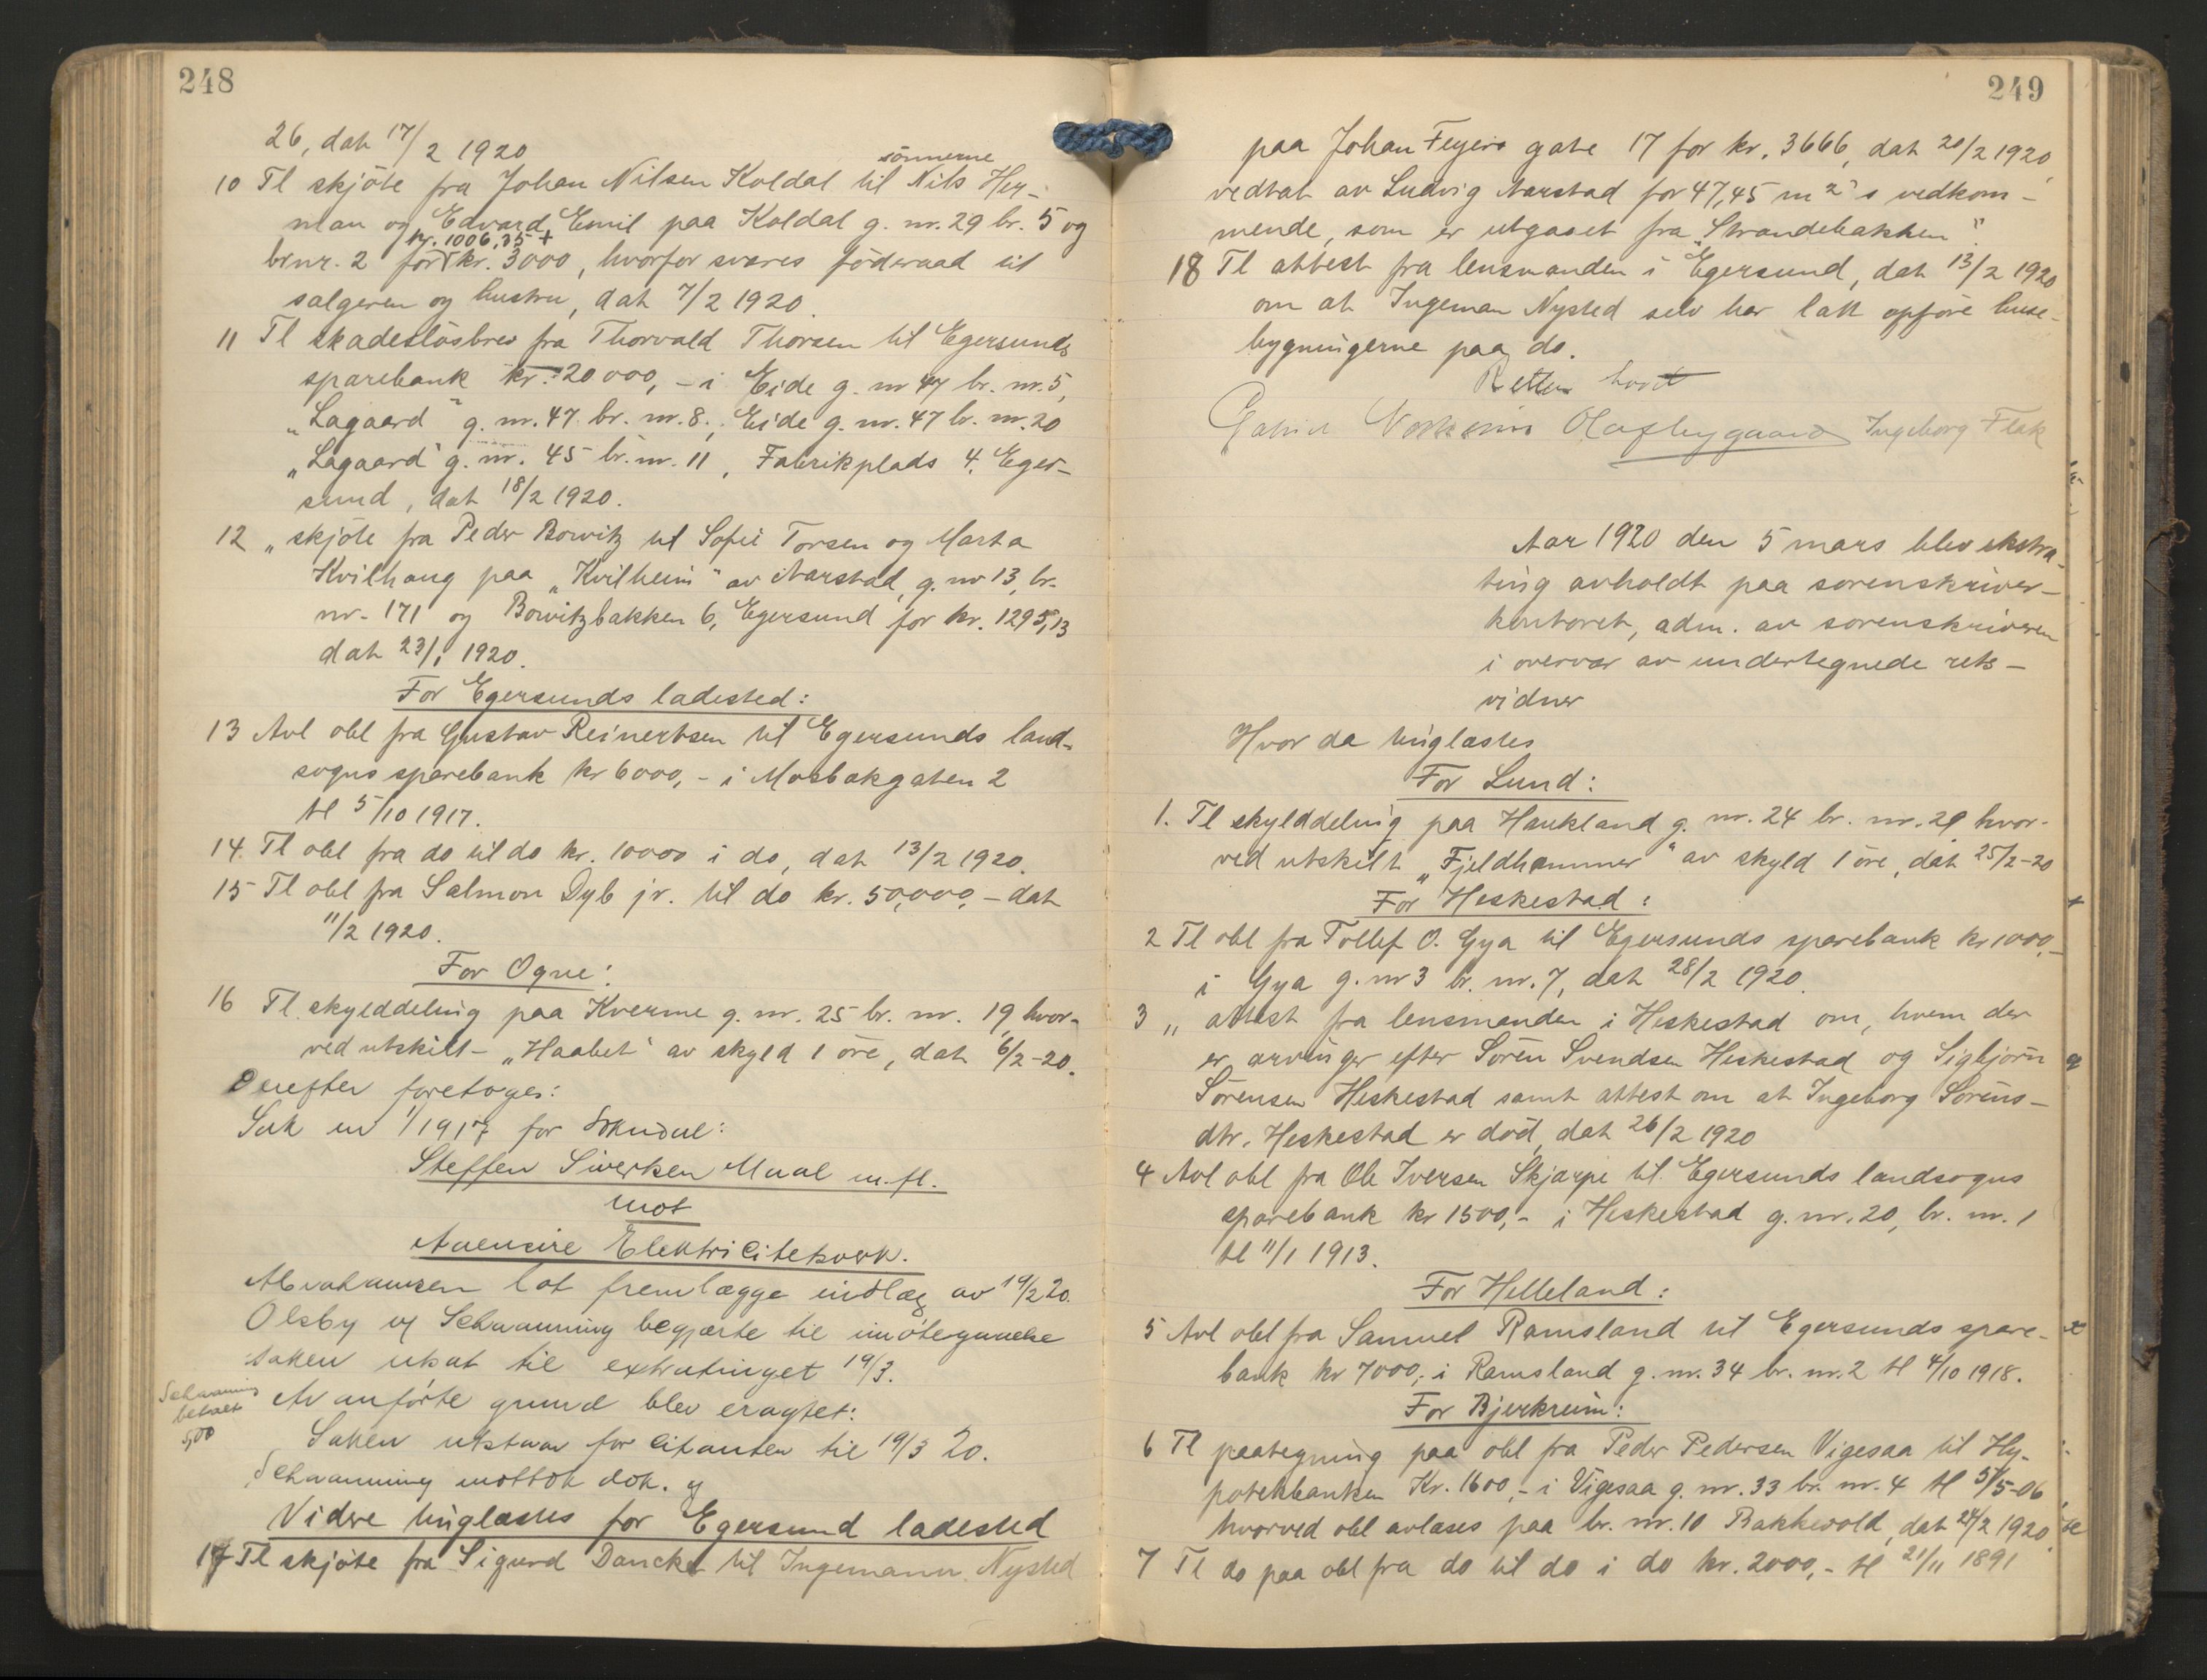 248
26, dat 17/2 1920
sönnerne
10 Tl skjöte fra Johan Nilsen Koldal til Nils Her-
man og Edvard Emil paa Koldal g. nr. 29 br. 5 og
kr. 1006,35 +
brnr. 2 for kr. 3000, hvorfor svares föderaad til
selgeren og hustru, dat 7/2 1920.
11 Tl skadeslösbrev fra Thorvald Thorsen til Egersunds
sparebank kr. 20000,- i Eide g. nr 47 br. nr. 5,
"Lagaard" g. nr. 47 br. nr. 8., Eide g. nr. 47 br. nr. 20
"Lagaard" g. nr. 45 br. nr. 11, Fabrikplads 4. Eger-
sund, dat 18/2 1920.
12 " skjöte fra Peder Bowitz til Sofie Torsen og Marta
Kvilhaug paa "Kvilheim" av Aarstad, g. nr 13, br.
nr. 171 og Bowitzbakken 6, Egersund for kr. 1295,13
dat 23/1 1920.
For Egersunds ladested:
13 Avl obl fra Gustav Reinertsen til Egersunds land-
sogns sparebank kr 6000,- i Mosbækgaten 2
tl 5/10 1917.
14. Tl obl fra do til do kr. 10000 i do, dat 13/2 1920.
15 Tl obl fra Salmon Dyb jr. til do kr. 50,000,- dat
11/2 1920.
For Ogne:
16 Tl. skylddeling paa Kverme g. nr. 25 br. nr. 19, hvor-
ved utskilt - "Haabet" av skyld 1 öre, dat 6/2-20.
Derefter foretoges:
Sak nr 1/1917 for Sokndal:
Steffen Siversen Mual m. fl.
mot
Aaensire Elektricitetsverk.
Abrahamsen lot fremlægge indlæg av 19/2 20.
Olsby og Schaanning begjærte til imötegaaelse
saken utsat til extratinget 19/3.
Schaanning
betalt
5,00
Av anförte grund blev eragtet:
Saken utstaar for citanten til 19/3 20.
Schaanning mottok dok. og
Videre tinglæstes for Egersund ladested
17 Tl skjöte fra Sigurd Danckel til Ingemann Nysted
249
paa Johan Feyers gate 17 for kr. 3666, dat 20/2 1920,
vedtat av Ludvig Aarstad for 47,45 m2's vedkom-
mende, som er utgaaet fra "Strandebakken".
18 Tl attest fra lensmanden i Egersund, dat 13/2 1920
om at Ingeman Nysted selv har latt opföre huse-
bygningerne paa do.
Retten hævet
Olaf Nygaard Ingeborg Flak
Aar 1920 den 5 mars blev ekstra-
ting avholdt paa sorenskriver-
kontoret, adm. av sorenskriveren
i overvær av undertegnede rets-
vidner
Hvor da tinglæstes
For Lund:
1. Tl skylddeling paa Haukland g. nr. 24 br. nr. 29 hvor-
ved utskilt "Fjeldhammer" av skyld 1 öre, dat 25/2-20
For Heskestad:
2 Tl obl fra Tollef O. Gya til Egersunds sparebank kr 1000,-
i Gya g. nr 3 br. nr. 7, dat 28/2 1920.
3 " attest fra lensmanden i Heskestad om, hvem der
er arvinger efter Sören Svendsen Heskestad og Sigbjörn
Sörensen Heskestad samt attest om at Ingeborg Sörens-
dtr. Heskestad er död, dat 26/2 1920
4 Avl obl fra Ole Iversen Skjærpe til Egersunds landsogns
sparebank kr 1500,- i Heskestad g. nr. 20, br. nr. 1
tl 11/1 1913.
For Helleland:
5 Avl obl fra Samuel Ramsland til Egersunds spare-
bank kr 7000,- i Ramsland g. nr. 34 br. nr. 2 tl 4/10 1918.
For Bjerkreim:
6 Tl paategning paa obl fra Peder Pedersen Vigesaa til Hy-
potekbanken Kr. 1600,- i Vigesaa g. nr. 33 br. nr. 4 tl 5/5-06,
hvorved obl avlæses paa br. nr. 10 Bakkevold, dat 24/2 1920.
7 Tl do paa obl fra do til do i do kr. 2000,- tl 21/11 1891